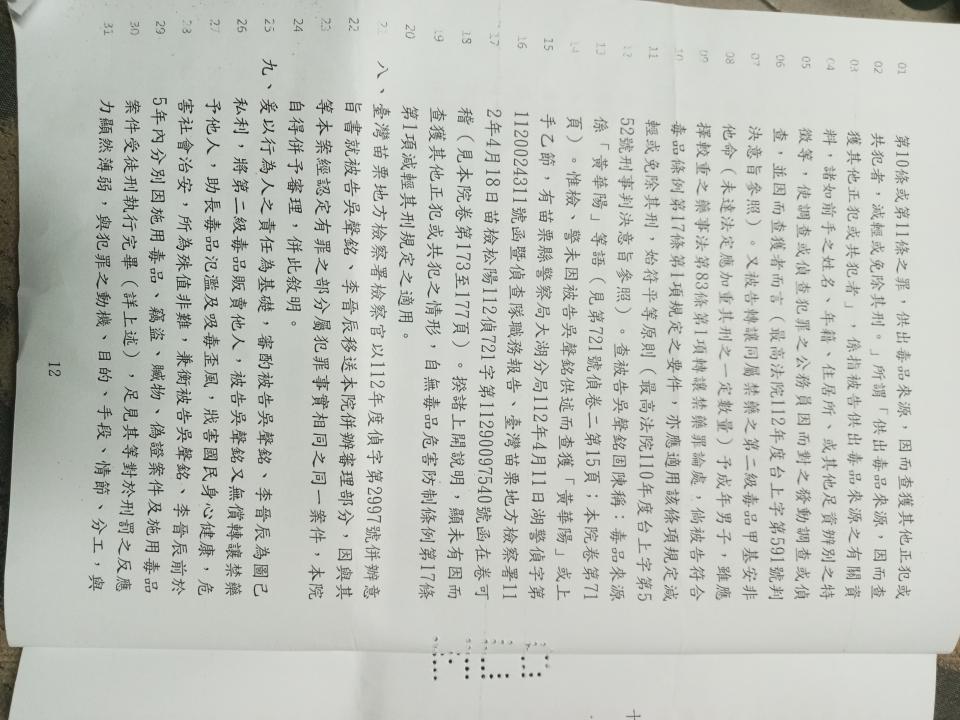 01 第10條或第11條之罪，供出毒品來源，因而查獲其他正犯或
02 共犯者，減輕或免除其刑。」所謂「供出毒品來源，因而查
03 獲其他正犯或共犯者」，係指被告供出毒品來源之有關資
04 料，諸如前手之姓名、年籍、住居所、或其他足資辨別之特
05 徵等，使調查或偵查犯罪之公務員因而對之發動調查或偵
06 查，並因而查獲者而言（最高法院112年度台上字第591號判
07 決意旨參照）。又被告轉讓同屬禁藥之第二級毒品甲基安非
08 他命（未達法定應加重其刑之一定數量）予成年男子，雖應
09 擇較重之藥事法第83條第1項轉讓禁藥罪論處，倘被告符合
10 毒品條例第17條第1項規定之要件，亦應適用該條項規定減
11 輕或免除其刑，始符平等原則（最高法院110年度台上字第5
12 52號刑事判決意旨參照）。查被告吳聲銘固陳稱：毒品來源
13 係「黃華陽」等語（見第721號偵卷二第15頁；本院卷第71
14 頁）。惟檢、警未因被告吳聲銘供述而查獲「黃華陽」或上
15 手乙節，有苗栗縣警察局大湖分局112年4月11日湖警偵字第
16 1120024311號函暨偵查隊職務報告、臺灣苗栗地方檢察署11
17 2年4月18日苗檢松陽112偵721字第1129009754​0號函在卷可
18 稽（見本院卷第173至177頁）。揆諸上開說明，顯未有因而
19 查獲其他正犯或共犯之情形，自無毒品危害防制條例第17條
20 第1項減輕其刑規定之適用。
21 八、臺灣苗栗地方檢察署檢察官以112年度偵字第2997號併辦意
22 旨書就被告吳聲銘、李晉辰移送本院併辦審理部分，因與其
23 等本案經認定有罪之部分屬犯罪事實相同之同一案件，本院
24 自得併予審理，併此敘明。
25 九、爰以行為人之責任為基礎，審酌被告吳聲銘、李晉辰為圖己
26 私利，將第二級毒品販賣他人，被告吳聲銘又無償轉讓禁藥
27 予他人，助長毒品氾濫及吸毒歪風，戕害國民身心健康，危
28 害社會治安，所為殊值非難，兼衡被告吳聲銘、李晉辰前於
29 5年內分別因施用毒品、竊盜、贓物、偽證案件及施用毒品
30 案件受徒刑執行完畢（詳上述），足見其等對於刑罰之反應
31 力顯然薄弱，與犯罪之動機、目的、手段、情節、分工，與
12